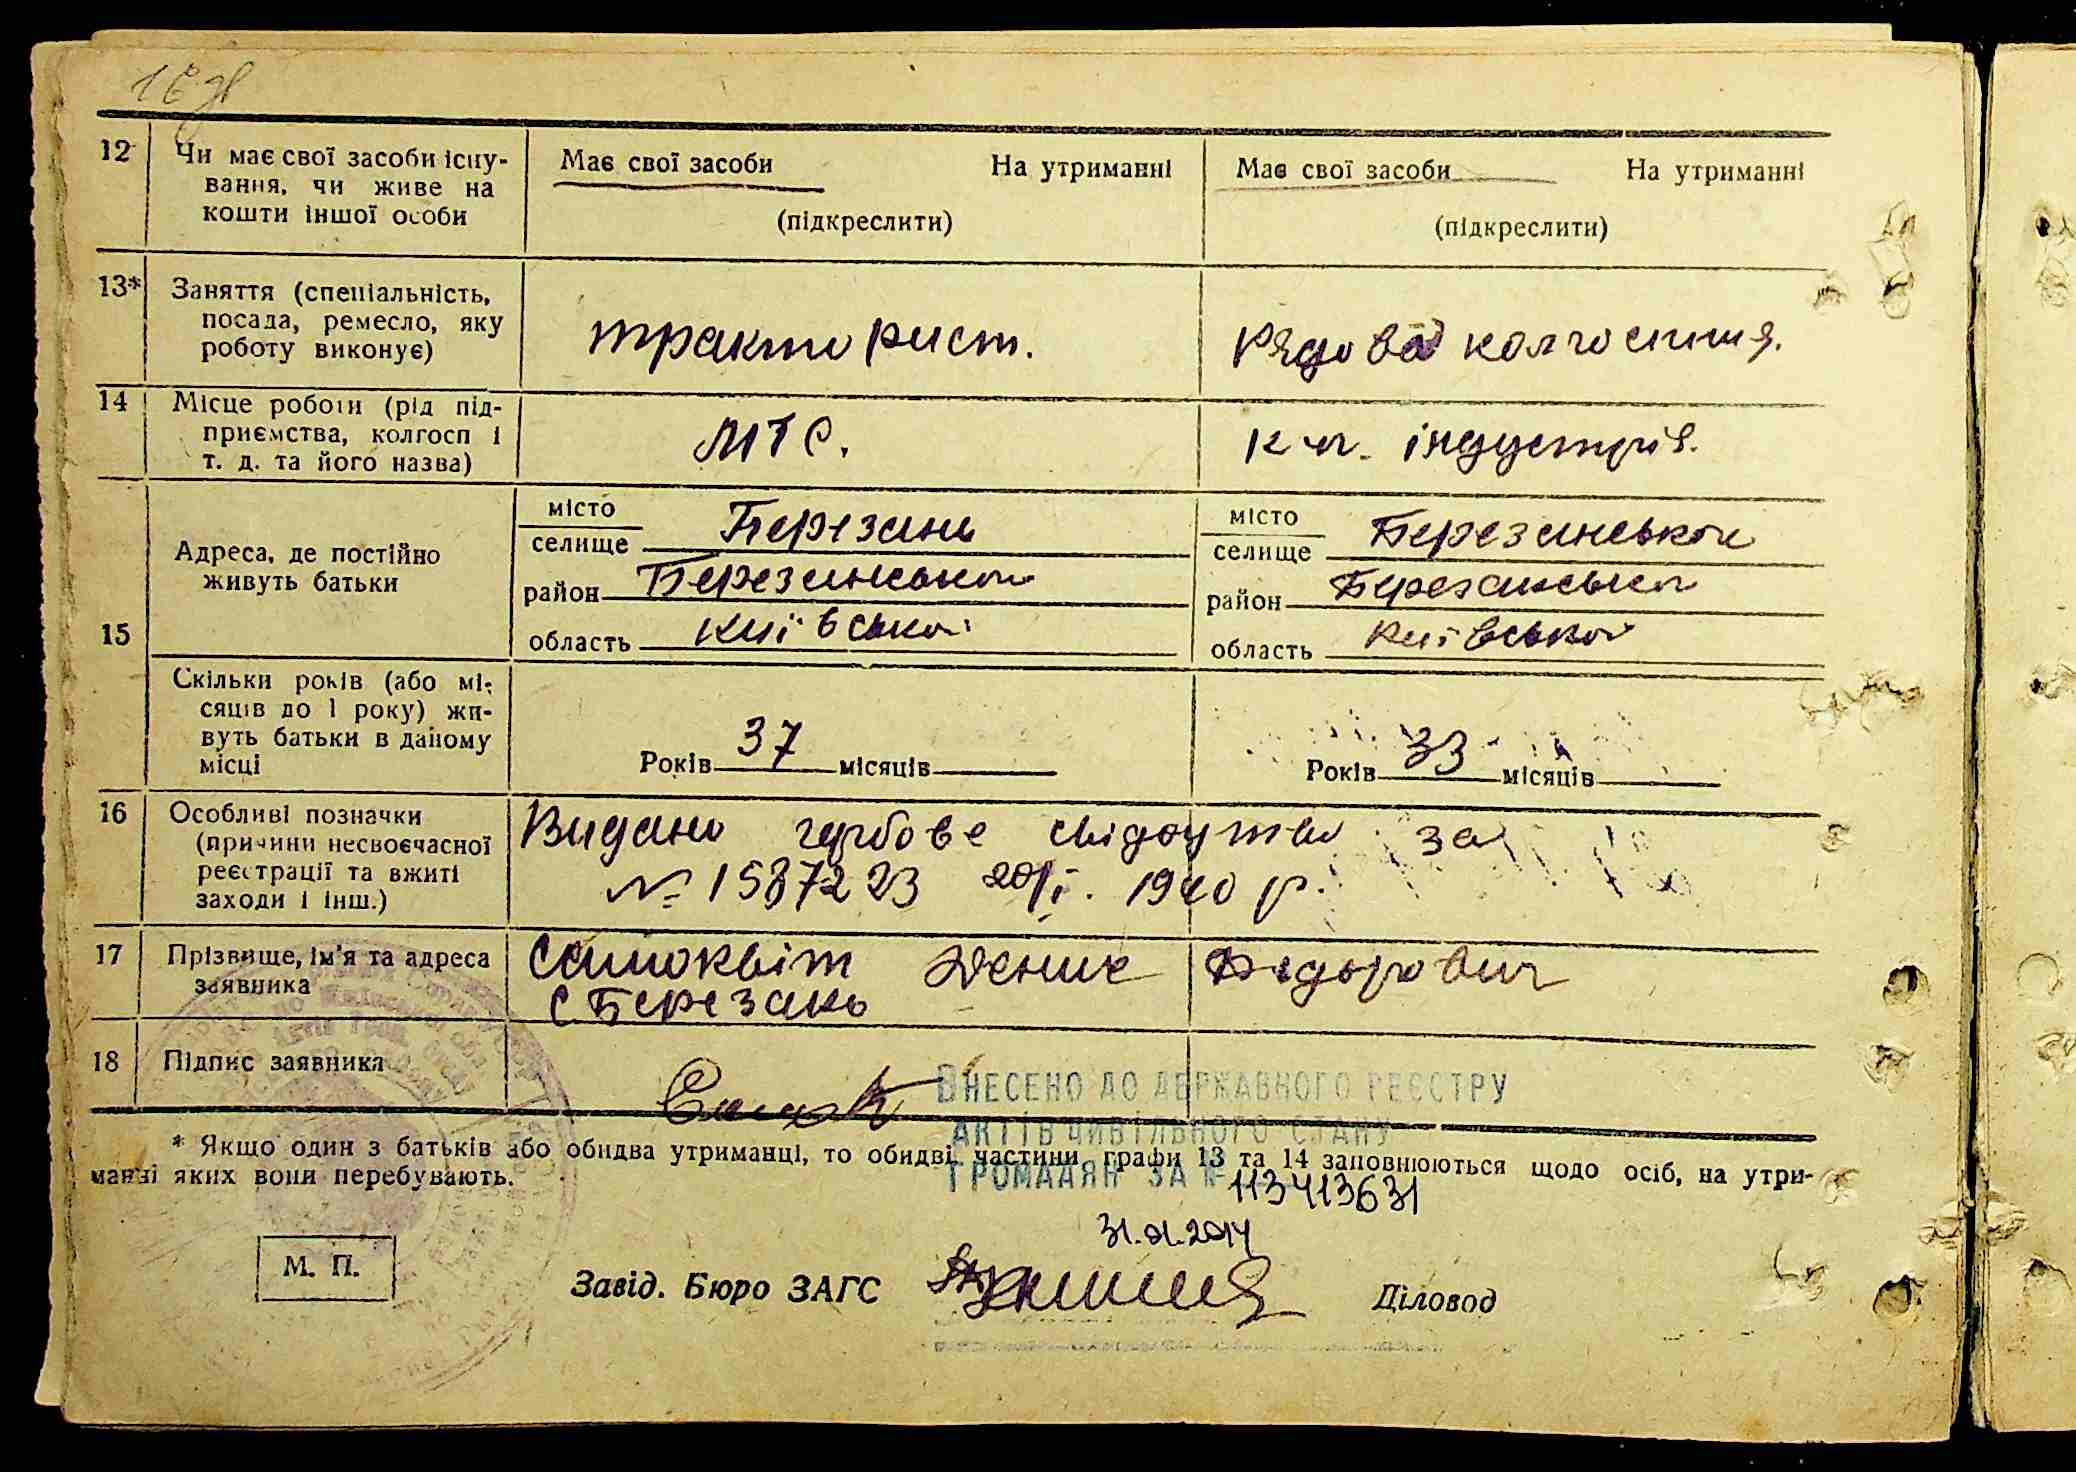 12
Чи має свої засоби існу-
вання, чи живе на
кошти іншої особи
Має свої засоби На утриманні
(підкреслити)
Має свої засоби На утриманні
(підкреслити)
13*
Заняття (спеціальність,
посада, ремесло, яку
роботу виконує)
тракторист.
Рядова колгоспниця.
14
Місце роботи (рід під-
приємства, колгосп і
т. д. та його назва)
МТС.
к-п. індустрія.
15
Адреса, де постійно
живуть батьки
місто
селище Березань
район Березанського
область Київської
місто
селище Березанської
район Березанського
область Київської
Скільки років (або мі-
сяців до 1 року) жи-
вуть батьки в даному
місці
Років 37 місяців
Років 33 місяців
16
Особливі позначки
(причини несвоєчасної
реєстрації та вжиті
заходи і інш.)
Видано гербове свідоцтво за
№ 1587223 20/I. 1940 р.
17
Прізвище, ім'я та адреса
заявника
Самоквіт Денис Федорович
с. Березань
18
Підпис заявника
ВНЕСЕНО ДО ДЕРЖАВНОГО РЕЄСТРУ
АКТІВ ЦИВІЛЬНОГО СТАНУ
ГРОМАДЯН ЗА № 113413631
* Якщо один з батьків або обидва утриманці, то обидві частини графи 13 та 14 заповнюються щодо осіб, на утри-
манні яких вони перебувають.
31.01.2014
М. П.
Завід. Бюро ЗАГС
Діловод